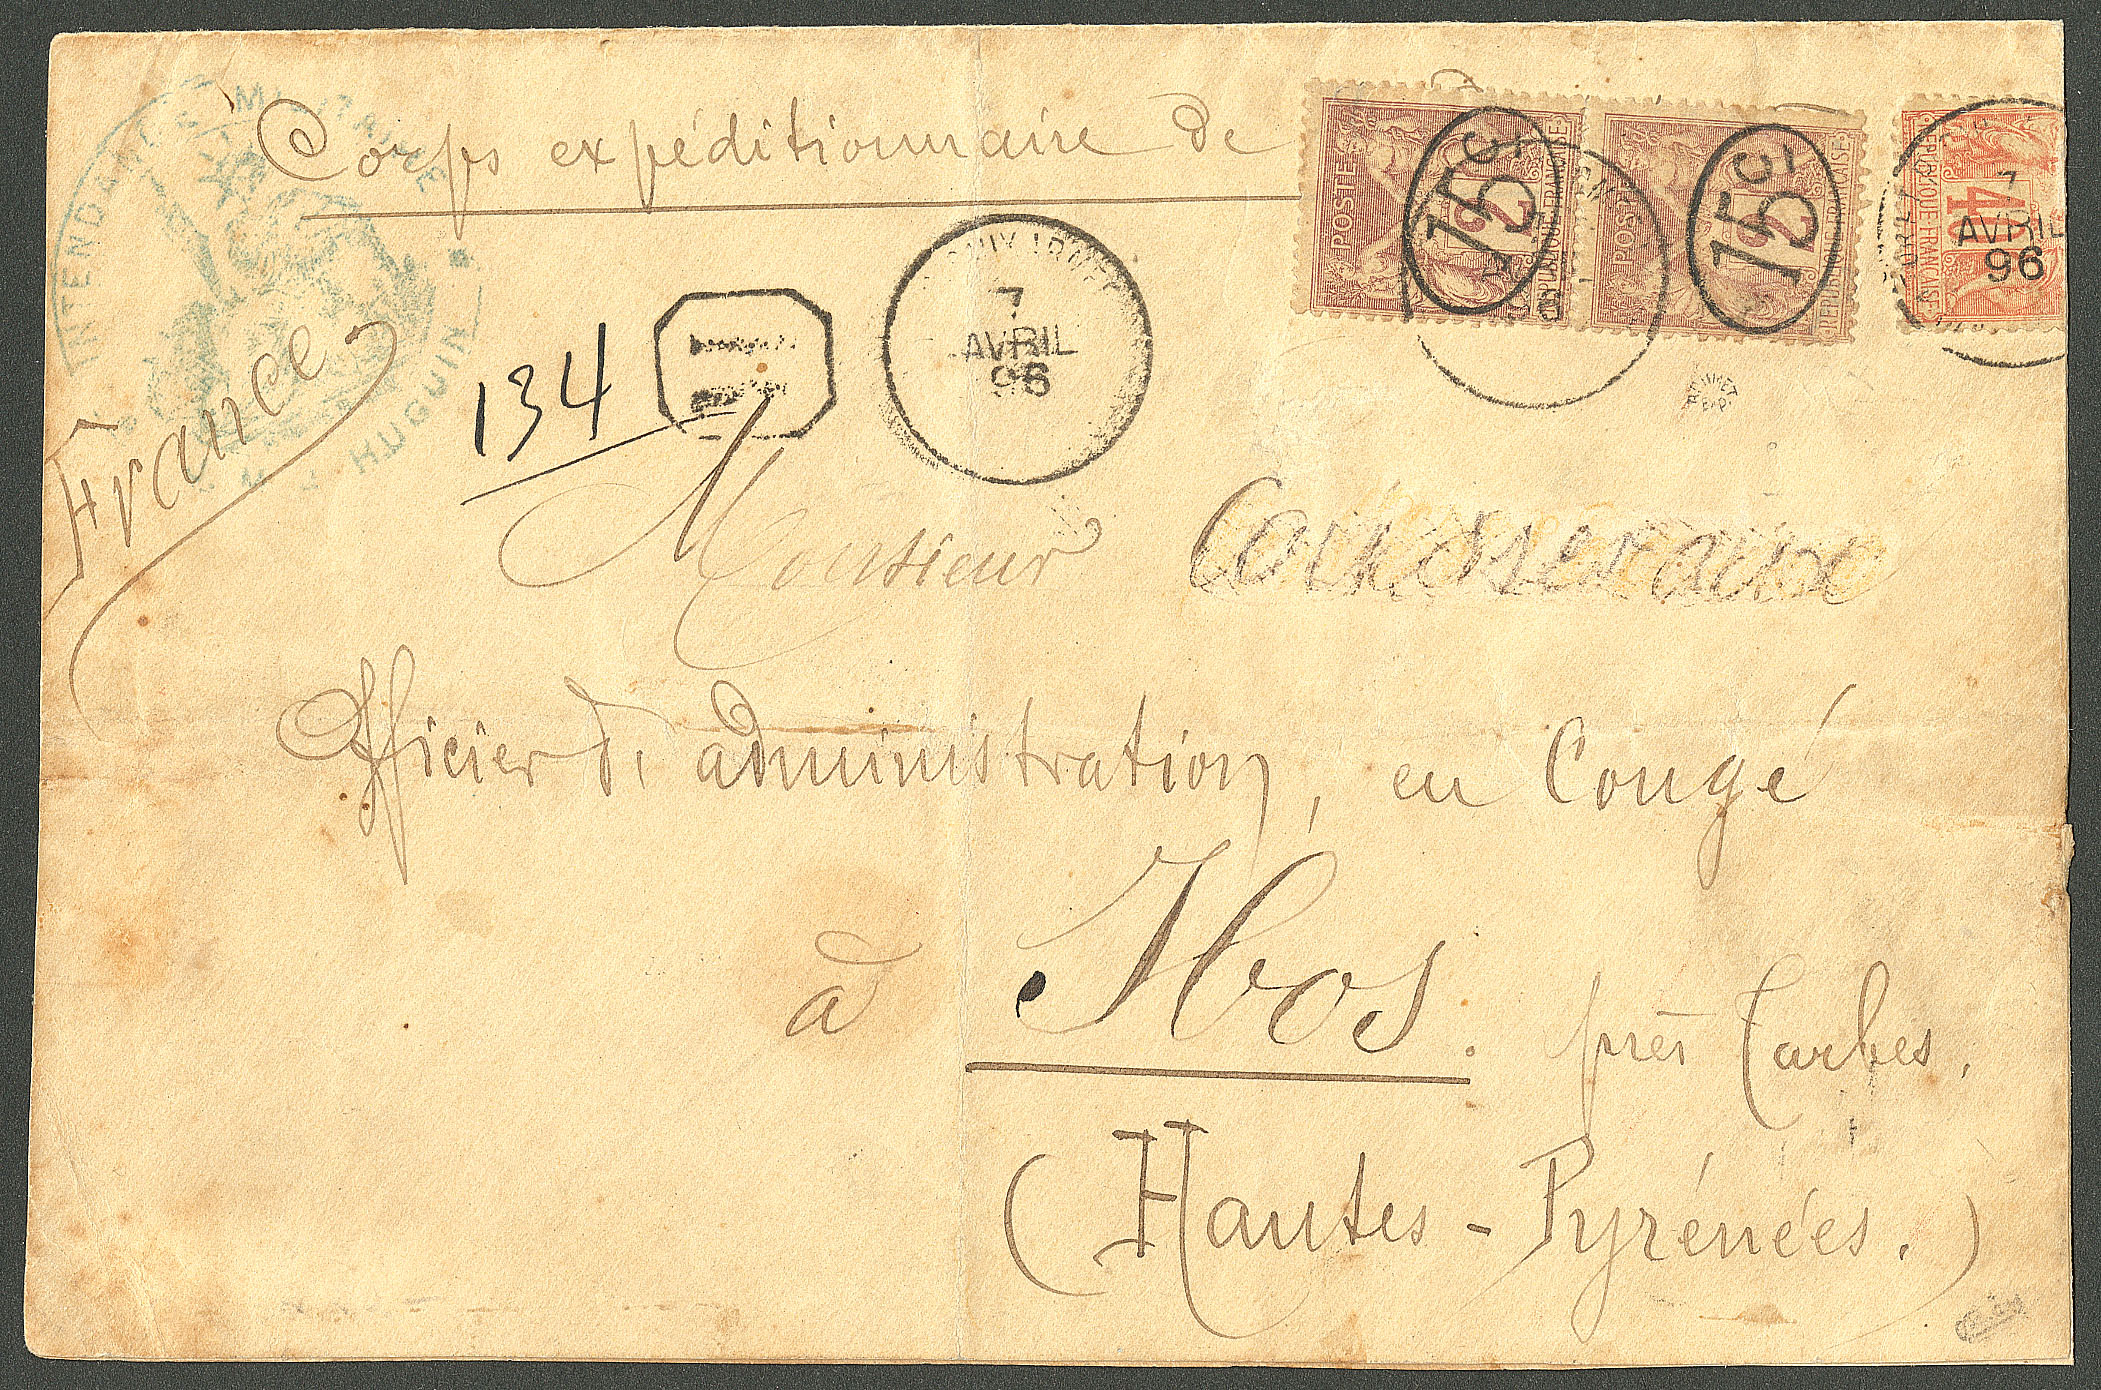 Corps expéditionnaire de
INTENDANCE MILITAIRE
HUGUIN
France
134
7
AVRIL
96
POSTE
2
REPUBLIQUE FRANCAISE
15 C
POSTE
2
REPUBLIQUE FRANCAISE
15 C
40
REPUBLIQUE FRANCAISE
7
AVRIL
96
Monsieur
Officier d'administration, en Congé
à Ibos. près Tarbes.
(Hautes-Pyrénées.)